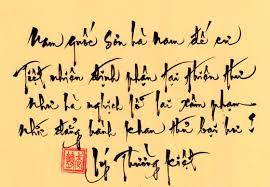 Nam quốc Sơn hà Nam đế cư
Tiệt nhiên định phận tại thiên thư
Như hà nghịch lỗ lai xâm phạm
Nhữ đẳng hành khan thủ bại hư!
Lý Thường Kiệt